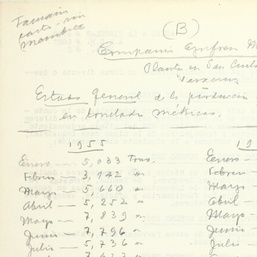 Tamaño
carta - sin
membrete
(B)
Compañia Azufrera M
Planta en San Cristo
Veracruz
Estado General de la producción
en toneladas métricas.
1955
Enero — 5,033 Tons.
Enero —
Febrero — 3,942 "
Febrero
Marzo — 5,660 "
Marzo
Abril — 5,252 "
Abril
Mayo — 7,839 "
Mayo
Junio — 7,796 "
Junio
Julio — 5,736 "
Julio